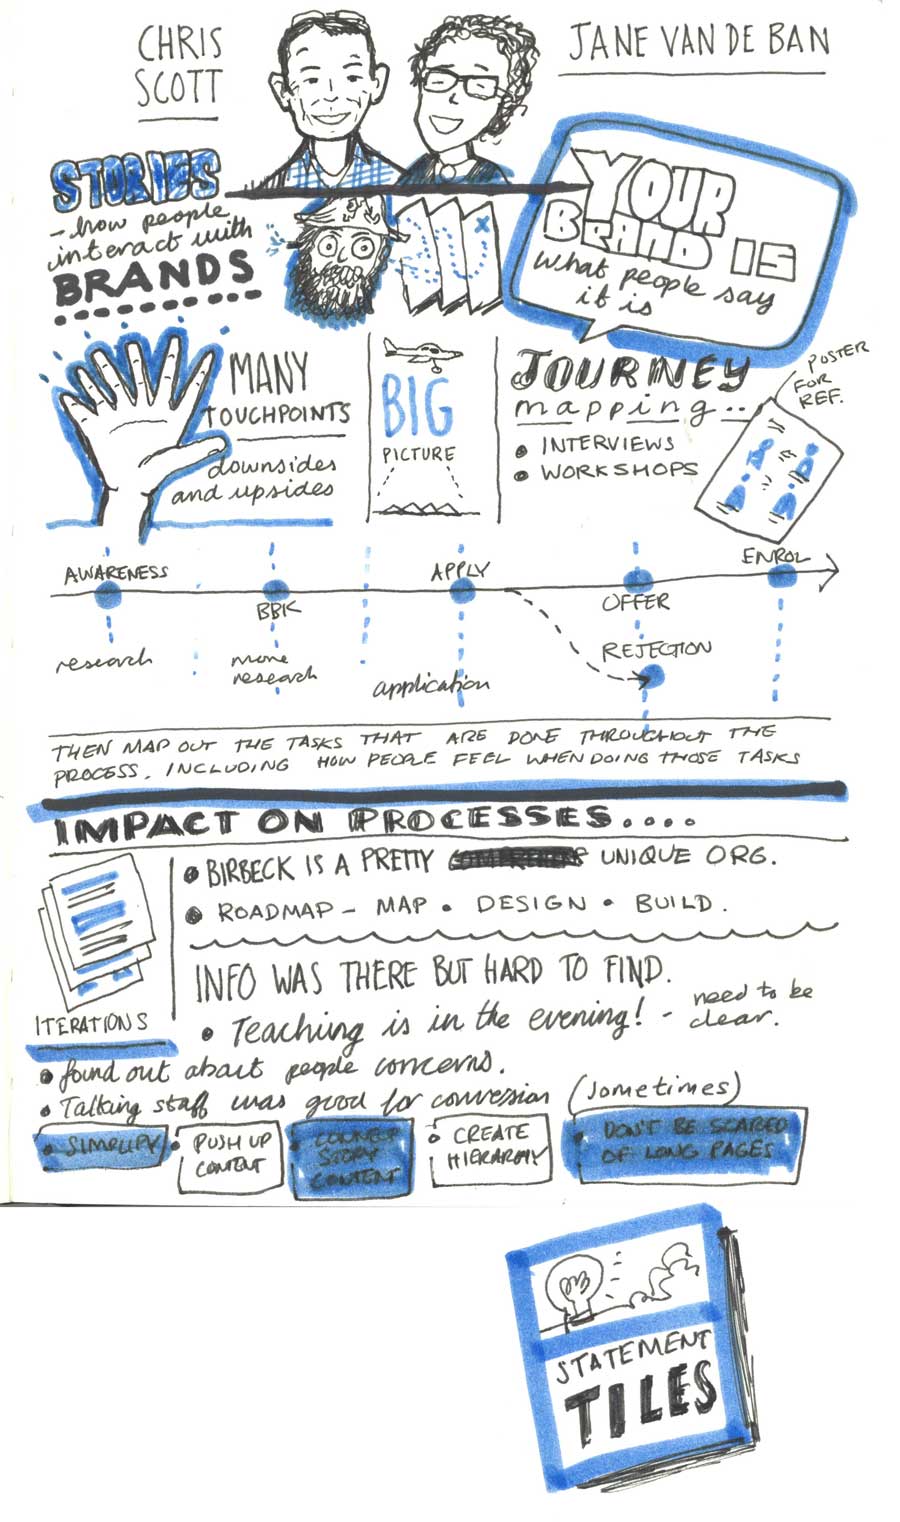 CHRIS
SCOTT
JANE VAN DE BAN
STORIES
- how people
interact with
BRANDS
YOUR
BRAND IS
what people say
it is
MANY
TOUCHPOINTS
downsides
and upsides
BIG
PICTURE
JOURNEY
mapping..
• INTERVIEWS
• WORKSHOPS
POSTER
FOR
REF.
AWARENESS
BBK
APPLY
OFFER
ENROL
REJECTION
research
more
research
application
THEN MAP OUT THE TASKS THAT ARE DONE THROUGHOUT THE
PROCESS, INCLUDING HOW PEOPLE FEEL WHEN DOING THOSE TASKS
IMPACT ON PROCESSES....
• BIRBECK IS A PRETTY UNIQUE ORG.
• ROADMAP - MAP • DESIGN • BUILD.
ITERATIONS
INFO WAS THERE BUT HARD TO FIND.
• Teaching is in the evening! - need to be
clear.
• found out about people concerns.
• Talking staff was good for conversion (sometimes)
• SIMPLIFY
• PUSH UP
CONTENT
• 
STORY
CONTENT
• CREATE
HIERARCHY
• DON'T BE SCARED
OF LONG PAGES
STATEMENT
TILES